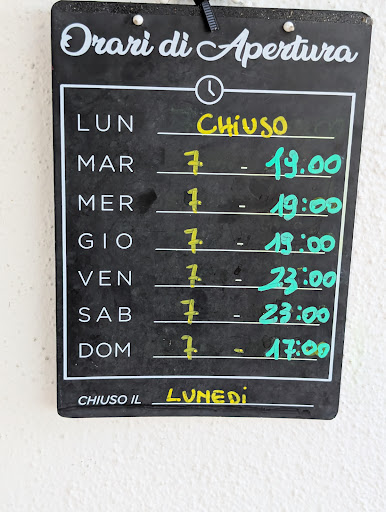 Orari di Apertura
LUN CHiUSO
MAR 7 - 19.00
MER 7 - 19:00
GIO 7 - 19:00
VEN 7 - 23:00
SAB 7 - 23:00
DOM 7 - 17:00
CHIUSO IL LUNEDi